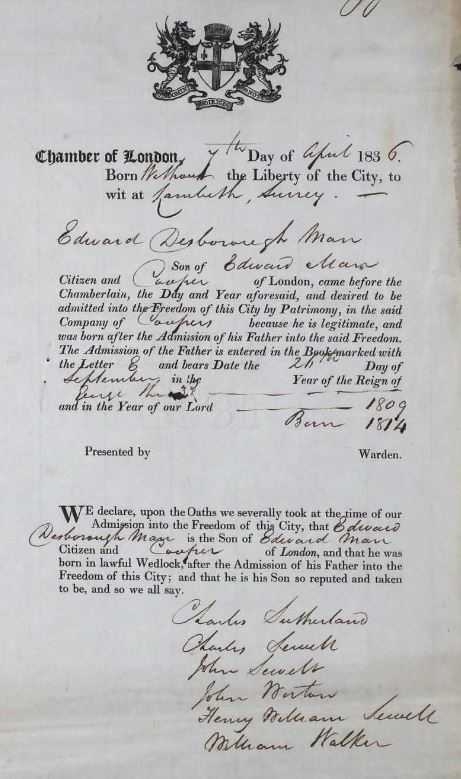 DOMINE DIRIGE NOS
Chamber of London, 7th Day of April 1836.
Born Without the Liberty of the City, to
wit at Lambeth, Surrey.
Edward Desborough Man
Son of Edward Man
Citizen and Cooper of London, came before the
Chamberlain, the Day and Year aforesaid, and desired to be
admitted into the Freedom of this City by Patrimony, in the said
Company of Coopers because he is legitimate, and
was born after the Admission of his Father into the said Freedom.
The Admission of the Father is entered in the Book marked with
the Letter E and bears Date the 26th Day of
September in the Year of the Reign of
George the 3rd
and in the Year of our Lord 1809
Born 1814
Presented by Warden.
WE declare, upon the Oaths we severally took at the time of our
Admission into the Freedom of this City, that Edward
Desborough Man is the Son of Edward Man
Citizen and Cooper of London, and that he was
born in lawful Wedlock, after the Admission of his Father into the
Freedom of this City; and that he is his Son so reputed and taken
to be, and so we all say.
Charles Sutherland
Charles Sewell
John Sewell
John Winton
Henry William Sewell
William Walker